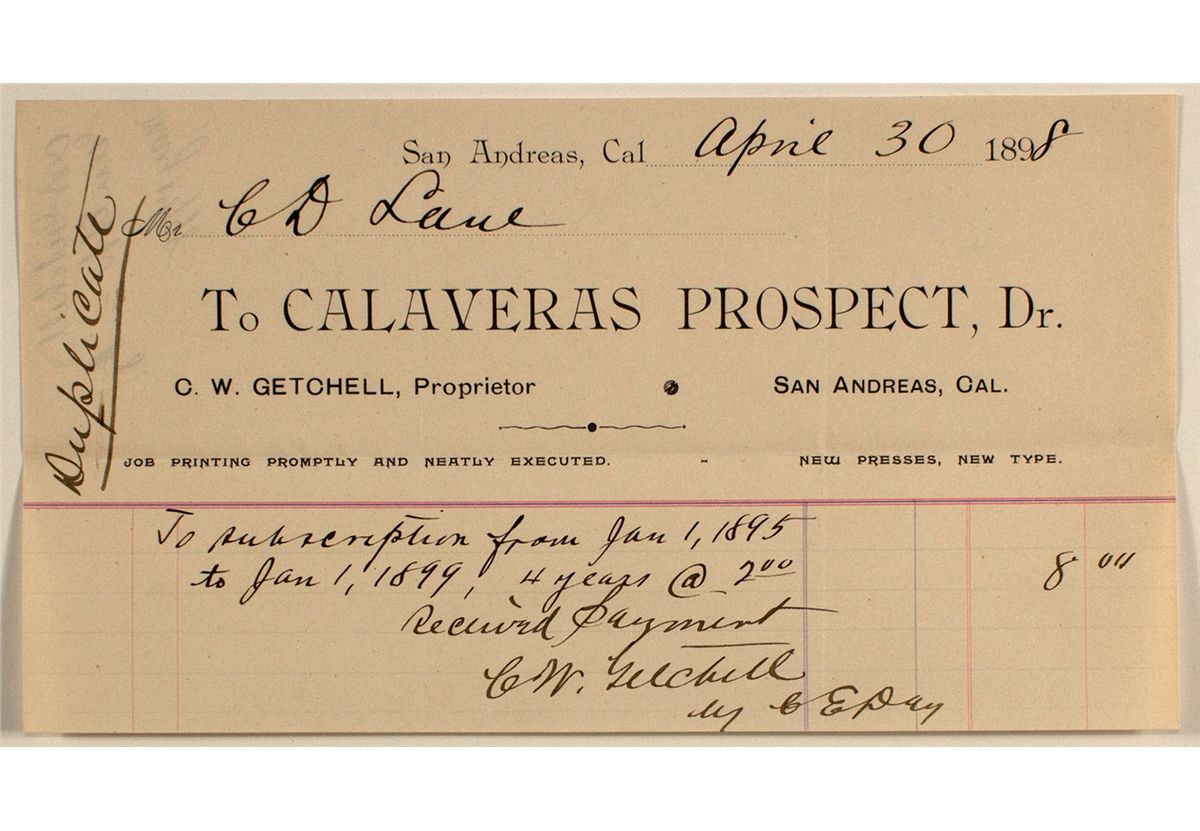 San Andreas, Cal April 30 1898
Mr C D Lane
Duplicate
To CALAVERAS PROSPECT, Dr.
C. W. GETCHELL, Proprietor SAN ANDREAS, CAL.
JOB PRINTING PROMPTLY AND NEATLY EXECUTED. - NEW PRESSES, NEW TYPE.
To subscription from Jan 1, 1895
to Jan 1, 1899, 4 years @ 2 00 8 00
Received Payment
C W. Getchell
by C E Day